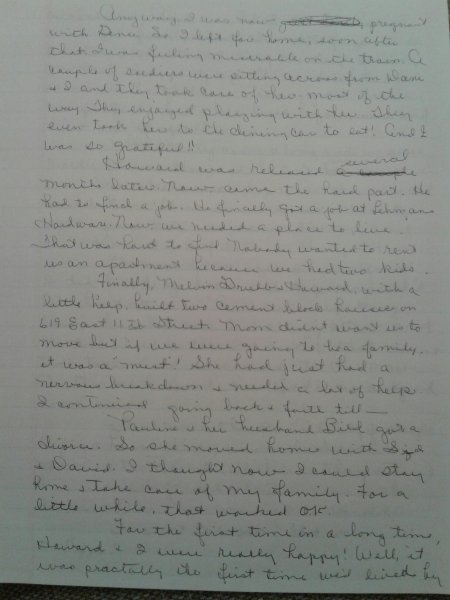 Anyway I was now pregnant
with Dena. So I left for home, soon after
that. I was feeling miserable on the train. A
couple of soldiers were sitting across from
& I and they took care of her most of the
way. They enjoyed playing with her. They
even took her to the dining car to eat! And I
was so grateful!!
Howard was released several
months later. Now came the hard part. He
had to find a job. He finally got a job at Lehman
Hardware. Now we needed a place to live.
That was hard to find. Nobody wanted to rent
us an apartment because we had two kids.
Finally, Melvin & Howard, with a
little help, built two cement block houses on
619 East 11th Street. Mom didnt want us to
move but if we were going to be a family,
it was a "must"! She had just had a
nervous breakdown & needed a lot of help
I continued going back & forth till —
Pauline & her husband Bill got a
divorce. So she moved home with
& David. I thought now I could stay
home & take care of my family. For a
little while, that worked OK.
For the first time in a long time,
Howard & I were really happy! Well, it
was practally the first time we'd lived by